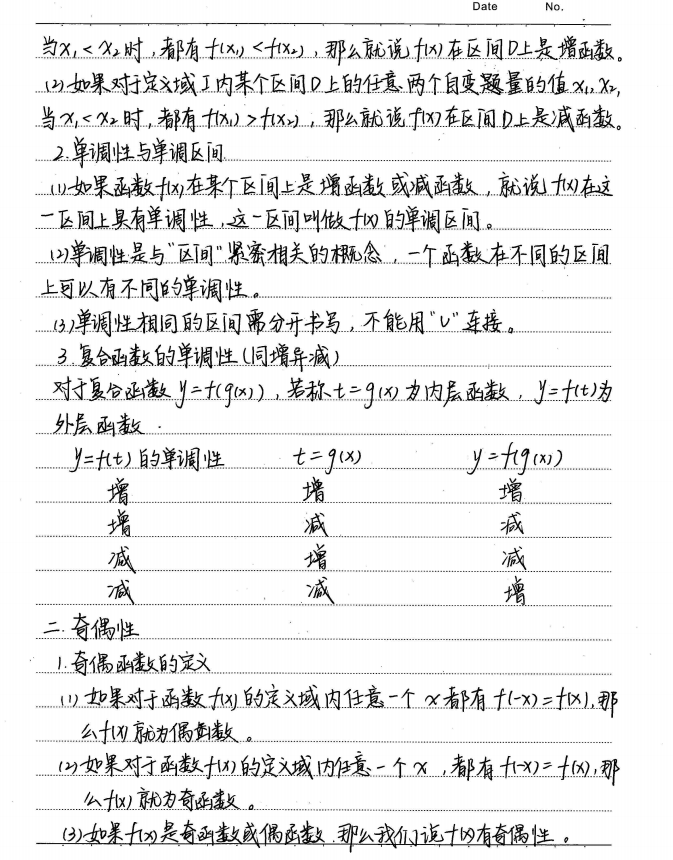 Date No.
当x₁<x₂时,都有f(x₁)<f(x₂),那么就说f(x)在区间D上是增函数。
(2)如果对于定义域I内某个区间D上的任意两个自变题量的值x₁,x₂,
当x₁<x₂时,都有f(x₁)>f(x₂),那么就说f(x)在区间D上是减函数。
2.单调性与单调区间
(1)如果函数f(x)在某个区间上是增函数或减函数,就说f(x)在这
一区间上具有单调性,这一区间叫做f(x)的单调区间。
(2)单调性是与"区间"紧密相关的概念,一个函数在不同的区间
上可以有不同的单调性。
(3)单调性相同的区间需分开书写,不能用"U"连接。
3.复合函数的单调性(同增异减)
对于复合函数y=f(g(x)),若称t=g(x)为内层函数,y=f(t)为
外层函数.
y=f(t)的单调性 t=g(x) y=f(g(x))
增 增 增
增 减 减
减 增 减
减 减 增
二.奇偶性
1.奇偶函数的定义
(1)如果对于函数f(x)的定义域内任意一个x都有f(-x)=f(x),那
么f(x)就为偶函数。
(2)如果对于函数f(x)的定义域内任意一个x,都有f(-x)=f(x),那
么f(x)就为奇函数。
(3)如果f(x)是奇函数或偶函数.那么我们说f(x)有奇偶性。